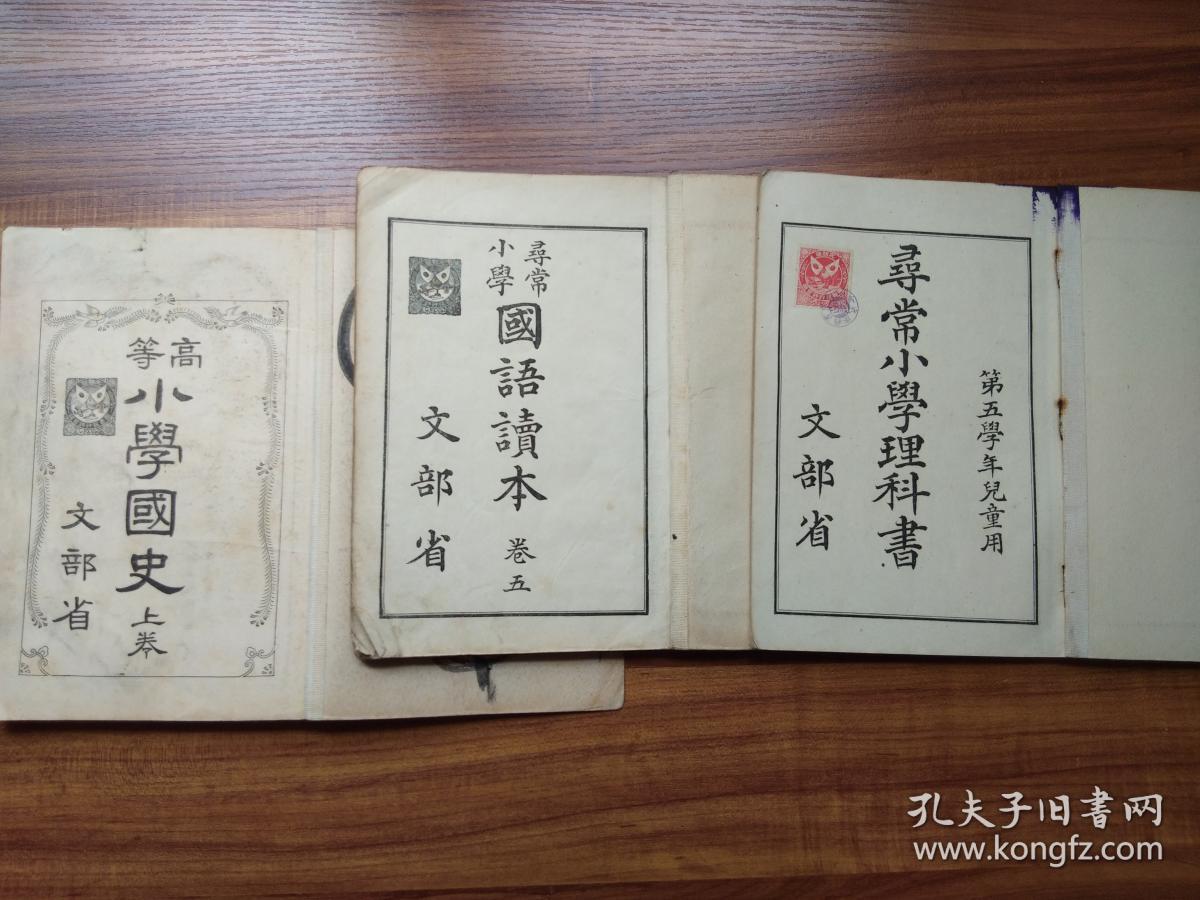 高等
小學國史 上卷
文部省
尋常
小學
國語讀本 卷五
文部省
第五學年兒童用
尋常小學理科書
文部省
孔夫子旧书网
www.kongfz.com